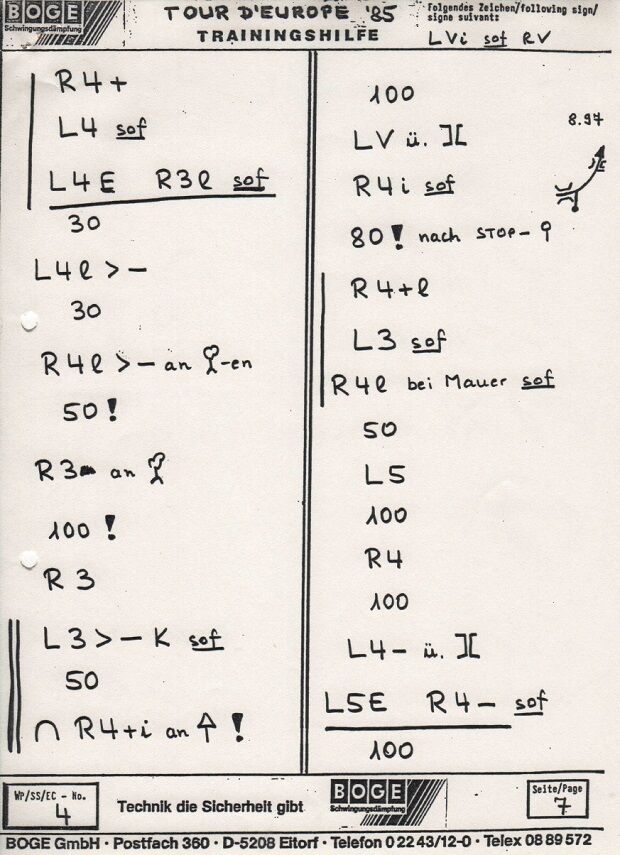 BOGE
Schwingungsdämpfung
TOUR D'EUROPE '85
TRAININGSHILFE
Folgendes Zeichen/following sign/
signe suivant:
LVi sof RV
R4+
L4 sof
L4E R3l sof
30
L4l > -
30
R4l > - an -en
50!
R3- an
100!
R3
L3 > - K sof
50
∩ R4+i an ↑ !
100
LV ü. ][
8.97
R4i sof
80! nach STOP-
R4+l
L3 sof
R4l bei Mauer sof
50
L5
100
R4
100
L4- ü. ][
L5E R4- sof
100
WP/SS/EC - No.
4
Technik die Sicherheit gibt
BOGE
Schwingungsdämpfung
Seite/Page
7
BOGE GmbH · Postfach 360 · D-5208 Eitorf · Telefon 0 22 43/12-0 · Telex 08 89 572